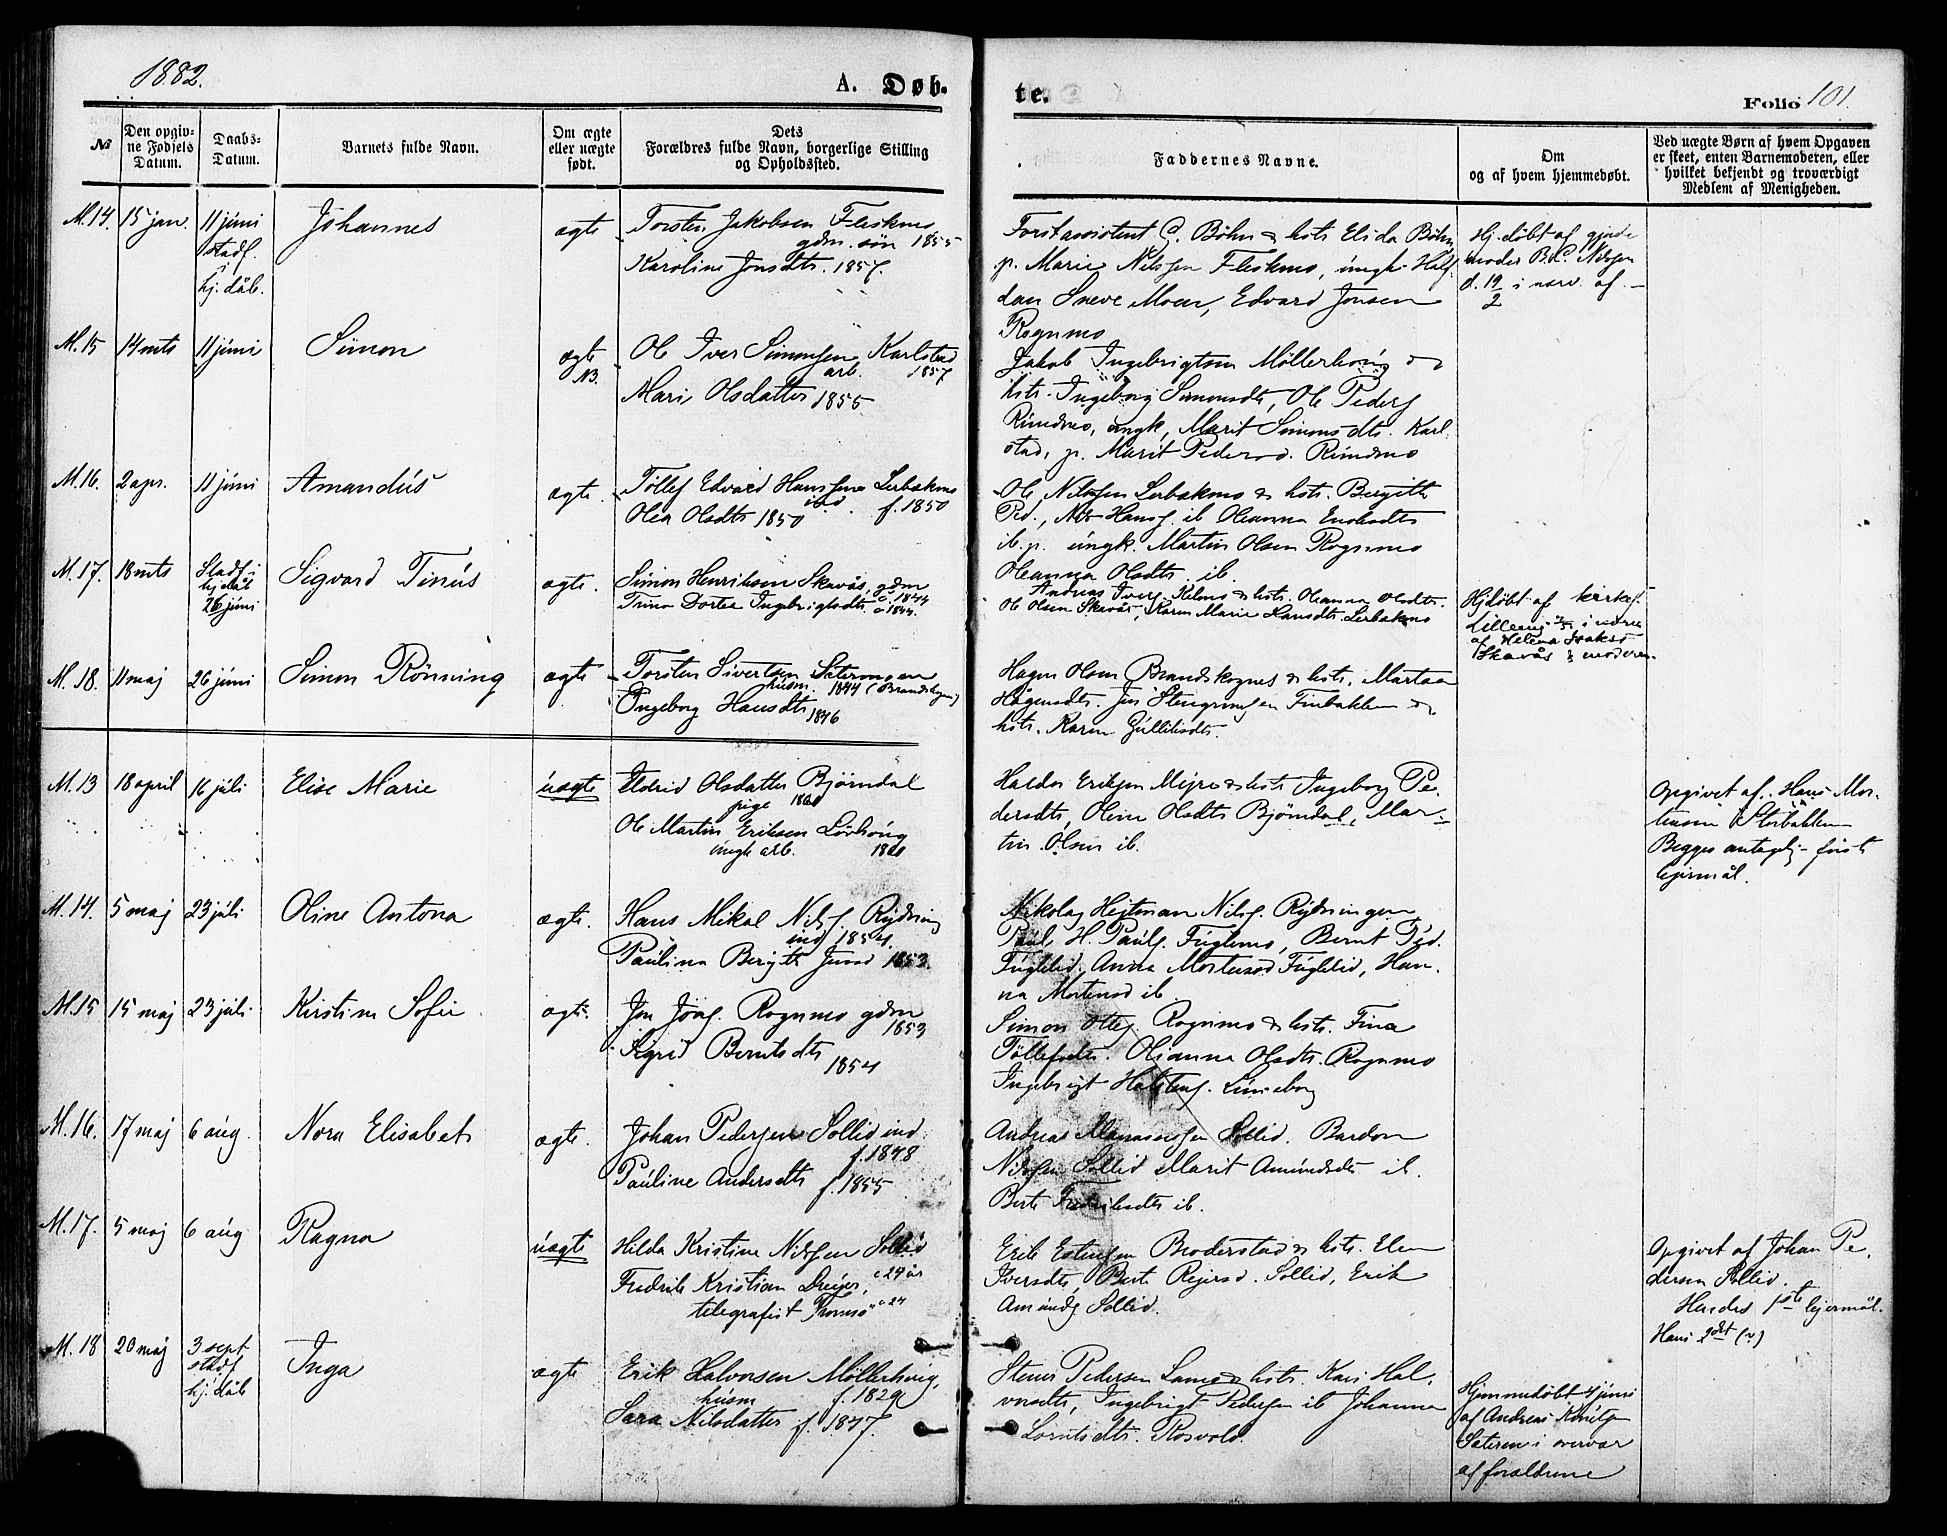 1882.
A. Døb-
te.
Folio 101.
№
Den opgiv-
ne Fødsels
Datum.
Daabs-
Datum.
Barnets fulde Navn.
Om ægte
eller uægte
født.
Dets
Forældres fulde Navn, borgerlige Stilling
og Opholdssted.
Faddernes Navne.
Om
og af hvem hjemmedøbt.
Ved uægte Børn af hvem Opgaven
er skeet, enten Barnemoderen, eller
hvilket bekjendt og troværdigt
Medlem af Menigheden.
M.14. 15 jan. 11 júni
stadf.
i
hj. dåb.
Johannes
ægte
Torsten Jakobsen Fleskmo
gdm. søn 1855
Karoline Jonsdtr. 1857.
Forstassistent G. Böhn & hstr Elida Böhn
p. Marie Nilssen Fleskmo, úngk. Half-
dan Sneve Moen, Edvard Jonsen
Rognmo
Hj. döbt af gjorde
moder B. C. Nilssen
d. 19/2 i nærv. af –
M.15 14 mts 11 júni
Simon
ægte
NB.
Ole Iver Simonsen Karlstad
arb. 1857
Mari Olsdatter 1855
Jakob Ingebrigtsen Möllerhaúg &
hstr. Ingeborg Simonsdtr, Ole Peders.
Rúndmo, úngk, Marit Simonsdtr. Karl-
stad, p. Marit Pedersd. Rúndmo
M.16. 2 apr. 11 júni
Amandús
ægte.
Tollef Edvard Hanssen Lerbakmo
ind. f. 1850
Olea Olsdtr 1850
Ole Nilssen Lerbakmo & hstr. Bergitte
Ped., Nils Hansf. ib Oleanna Enoksdtr
ib. p. úngk. Martin Olsen Rognmo
Oleanna Olsdtr. ib.
M.17. 18 mts
Stadf. i
hj dåb
26 júni
Sigvard Tinús
ægte.
Simon Henriksen Skavås, gdm
c. 1844
Trina Dortea Ingebrigtsdtr. c 1844.
Andreas Ivers. Kelmo & hstr. Oleanna Olsdtr.
Ole Olsen Skavås, Karen Marie Hansdtr. Lerbakmo
Hjdöbt af kirkes.
Lilleeng i nærv
af Helena Isaks
Skavås & moderen.
M.18. 11 maj 26 júni
Simon Rönning
ægte
Torsten Sivertsen Sætermoen
húsm. 1844 (Brandskognes)
Ingeborg Hansdtr 1846
Hagen Olsen Brandskognes & hstr. Martaa
Hågensdtr. Jon Stengrimsen Finbakken &
hstr. Karen Gúlliksdtr.
M.13 18 april 16 júli
Elise Marie
úægte
Eldrid Olsdatter Björndal
pige 1860
Ole Martin Eriksen Lövhaúg
úngk arb. 1860
Haldor Eriksen Mejre & hstr Ingeborg Pe-
dersdtr, Oline Olsdtr Björndal, Mar-
tin Olsen ib.
Opgivet af Hans Mor-
tensen Storbakken
Begges antagelig förste
lejermål.
M.14. 5 maj 23 júli
Oline Antona
ægte.
Hans Mikal Nilsf. Rydning
ind 1854.
Paúlina Bergitte Jensd 1853.
Nikolaj Hejtman Nilsf. Rydningen
Paúl H. Paúls. Fúglemo, Bernt Ped.
Fúglelid, Anna Mortensd Fúglelid, Han-
na Mortensd ib
M.15 15 maj 23 júli
Kirstine Sofie
ægte.
Jon Jons. Rognmo gdm
1853
Sigrid Berntsdtr
1854
Simon Ottes. Rognmo & hstr. Fina
Tollefsdtr. Oleanna Olsdtr. Rognmo
Ingebrigt Halstens. Lúneborg
M.16. 17 maj 6 aúg.
Nora Elisabet
ægte.
Johan Pedersen Sollid ind.
f. 1848
Paúline Andersdtr f. 1855
Andreas Manassesen Sollid. Bardon
Nilssen Sollid Marit Amúndsdtr ib.
Berte Fredriksdtr ib.
M.17. 5 maj 6 aúg
Ragna
úægte
Hilda Kristine Nilssen Sollid
c 24 år
Fredrik Kristian Dreyer,
telegrafist Tromsö c 24
Erik Estensen Broderstad & hstr. Elen
Iversdtr, Berte Rejersd. Sollid, Erik
Amúnds Sollid.
Opgivet af Johan Pe-
dersen Sollid.
Hendes 1ste lejermål.
Hans 1det (?)
M.18 20 maj 3 sept
stadf
hj. dåb
Inga
ægte
Erik Halvorsen Möllerhaúg,
húsm f. 1829
Sara Nilsdatter f. 1847.
Stener Pedersen Lame & hstr. Kari Hal-
vorsdtr, Ingebrigt Pedersen ib Johanna
Lorntsdtr. Rosvold.
Hjemmedöbt 4 júni
af Andreas Knúts.
Sæteren i overvær
af forældrene